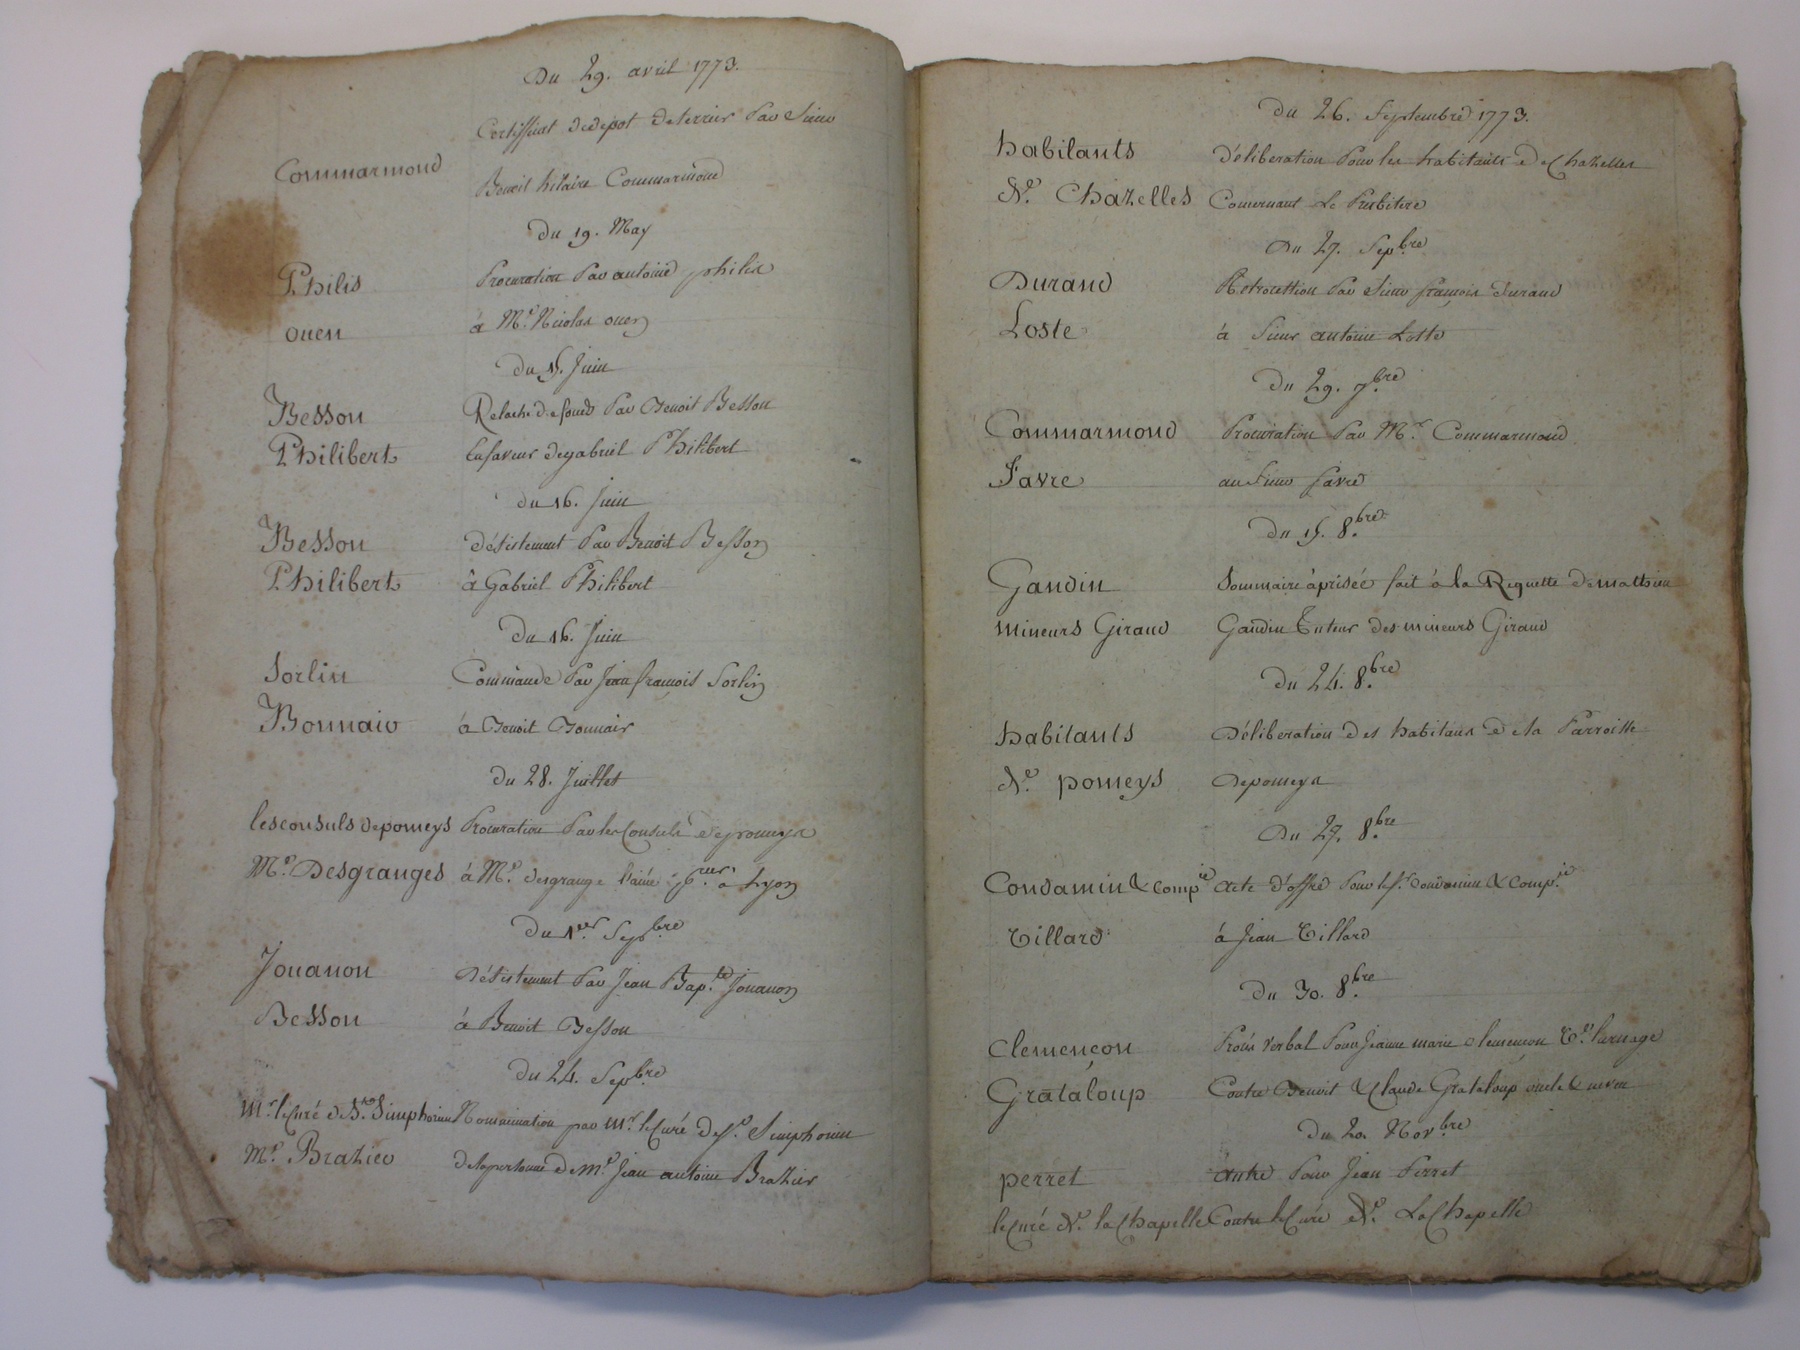 Du 29. avril 1773.
Certifficat de depot de terrier Par Sieur
Commarmond
Benoit hilaire Commarmond
Du 19. May
Philis Procuration Par antoine philis
ouen à Me. Nicolas ouen
Du 15. Juin
Besson Relache de fonds Par Benoit Besson
Philibert En faveur de gabriel Philibert
du 16. Juin
Besson désistement Par Benoit Besson
Philibert à Gabriel Philibert
Du 16. Juin
Sorlin Commande Par Jean françois Sorlin
Bonnair à Benoit Bonnair
du 28. Juillet
les consuls de pomeys Procuration Par les Consuls de pomeys
Me. Desgranges à Me. desgrange l'ainé à Lyon
Du 1er. Sepbre
Jouanon Désistement Par Jean Bap.te Jouanon
Besson à Benoit Besson
du 24. Sepbre
Mr le Curé de St. Simphorien Nommination par Mr le Curé de St. Simphorien
Me. Brazier de la personne de Me Jean antoine Brazier
Du 26. Septembre 1773.
habitants Déliberation Pour les habitants de Chazelles
De. Chazelles Concernant Le Presbitere
Du 27. Sepbre
Durand Retrocettion Par Sieur françois durand
Loste à Sieur antoine Lotte
Du 29. 7bre
Commarmond Procuration Par Mr. Commarmond
Favre au Sieur favre
Du 15. 8bre
Gandin Sommaire àprisée fait à la Requette de mathieu
mineurs Giraud Gandin Tuteur des mineurs Giraud
Du 24. 8bre
habitants Déliberation des habitans de la Parroisse
De. pomeys de pomeys
Du 27. 8bre
Condamin & Compie acte d'offre Pour le Sr. Condamin & Comp.ie
Tillard à Jean Tillard
Du 30. 8bre
Clemençon Procès verbal Pour Jeanne marie Clemencon
Grataloup Contre Benoit & Claude Grataloup oncle & neveu
Du 20. Novbre
perret autre Pour Jean Perret
le Curé De. la Chapelle Contre le Curé De. La Chapelle